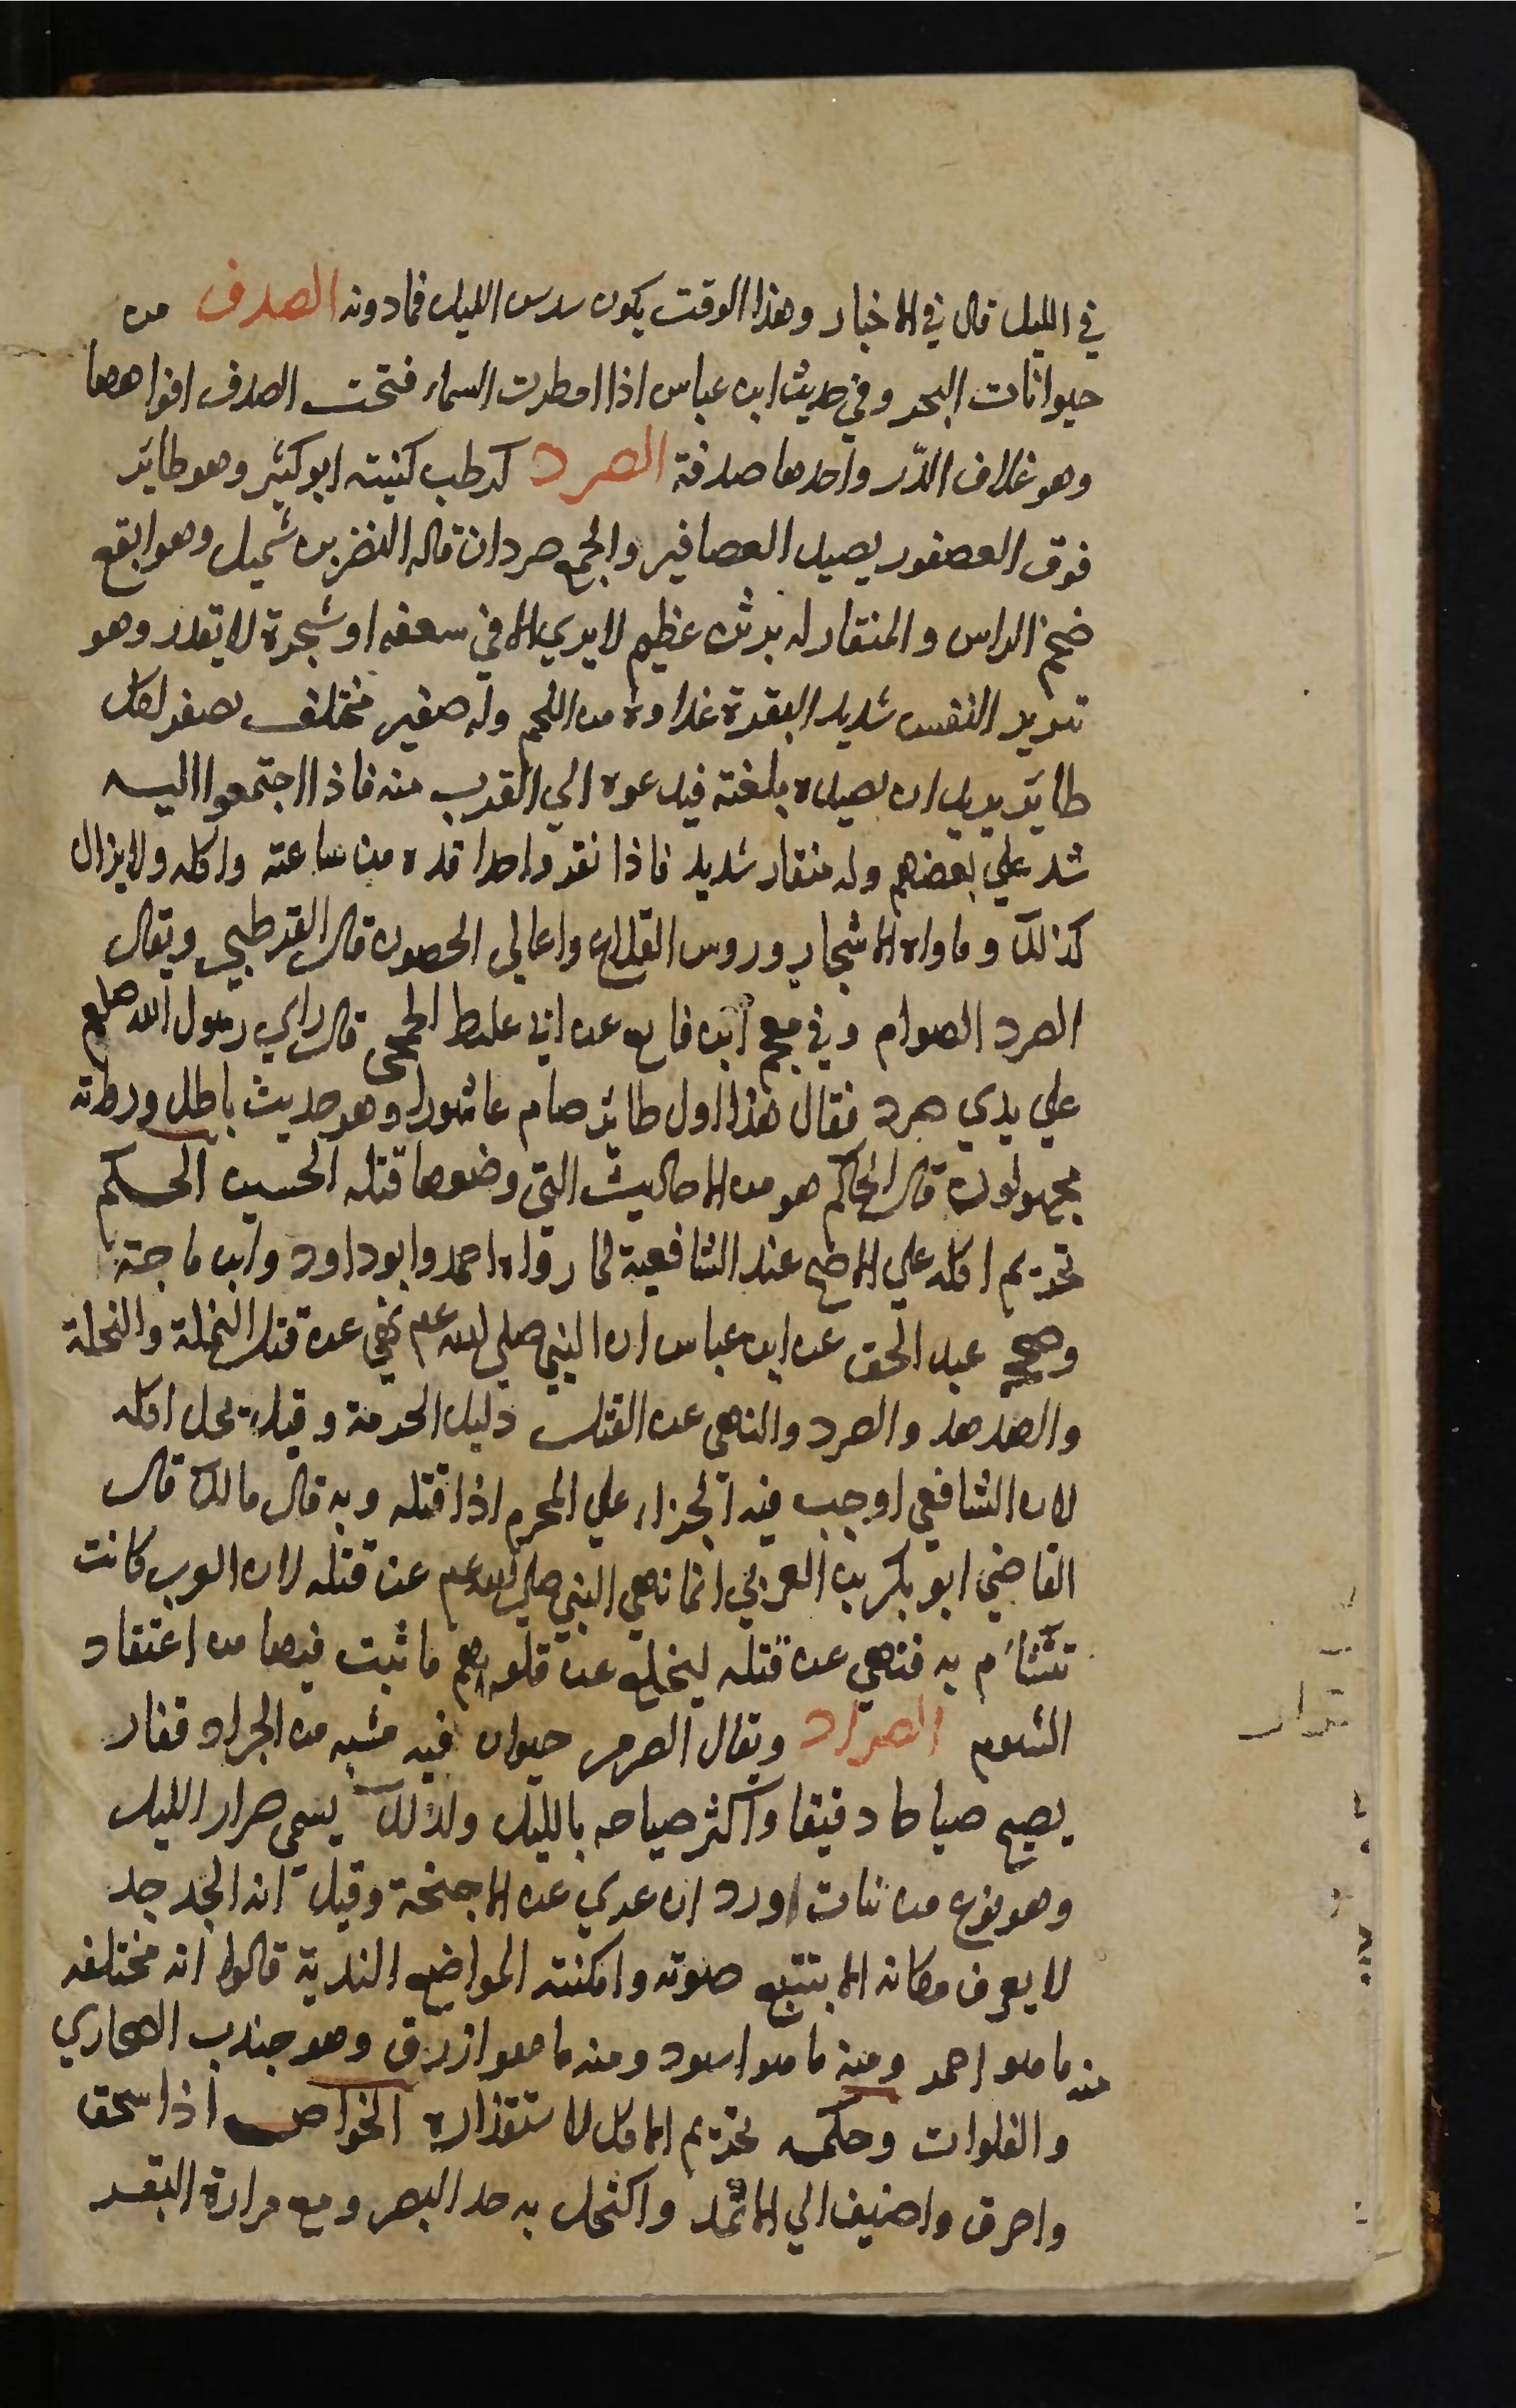 في الليل قال في الاخبار وهذا الوقت يكون سدس الليل فما دونه الصدف من
حيوانات البحر وفي حديث ابن عباس اذا امطرت السماء فتحت الصدف افواهها
وهو غلاف الدّر واحدها صدفة الصرد كرطب كنيته ابو كثير وهو طائر
فوق العصفور يصيد العصافير والجمع صردان قاله النضر بن شميل وهو ابقع
ضخم الراس والمنقار له برثن عظيم لا يري الا في سعفه او شجرة لا يقدر وهو
شرير النفس شديد النفرة غداوه من اللحم وله صفير مختلف يصفر لكل
طائر يريد ان يصيده بلغته فيدعوه الي القرب منه فاذا اجتمعوا اليه
شد علي بعضهم وله منقار شديد فاذا نقر واحدا قده من ساعته واكله ولا يزال
كذلك وماواه الاشجار وروس القلاع واعالي الحصون قال القرطبي ويقال
الصرد الصوام وفي معجم ابن قانع عن ابي غليظ الجمحى قال راي رسول الله صلعم
علي يدي صرد فقال هذا اول طائر صام عاشورا وهو حديث باطل ورواته
مجهولون قال الحاكم هو من الاحاديث التي وضعوها قتله الحسين الحكم
تحريم اكله علي الاصح عند الشافعية لما رواه احمد وابو داود وابن ماجة
وصححه عبد الحق عن ابن عباس ان النبي صلي الله عم نهي عن قتل النملة والنحلة
والهدهد والصرد والنهى عن القتل دليل الحرمة وقيل يحل اكله
لان الشافعي اوجب فيه الجزاء علي المحرم اذا قتله وبه قال مالك قال
القاضي ابو بكر بن العربي انما نهي النبي صلي الله عم عن قتله لان العرب كانت
تتشائم به فنهي عن قتله ليخلع عن قلوبهم ما ثبت فيها من اعتقاد
الشوم الصرار ويقال الصرصر حيوان فيه مشبه من الجراد قفار
يصيح صياحا دقيقا واكثر صياحه بالليل ولذلك يسمى صرار الليل
وهو نوع من بنات اورد ان عدي عن الاجنحة وقيل انه الجدجد
لا يعرف مكانه الا بتتبع صوته وامكنته المواضع الندية قالوا انه مختلفه
منه ما هو احمر ومنه ما هو اسود ومنه ما هو ازرق وهو جندب الصحاري
والفلوات وحكمه تحريم الاكل لاستقذاره الخواص اذا سحق
واحرق واضيف الي الاثمد واكتحل به حد البصر ومع مرارة البقر